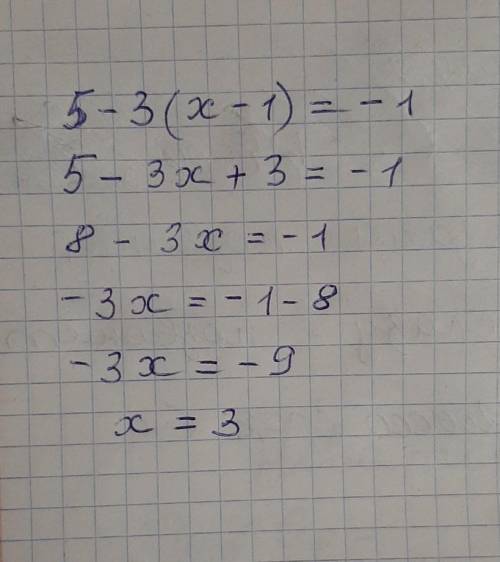 5 - 3(x - 1) = - 1
5 - 3x + 3 = - 1
8 - 3x = - 1
- 3x = - 1 - 8
- 3x = - 9
x = 3